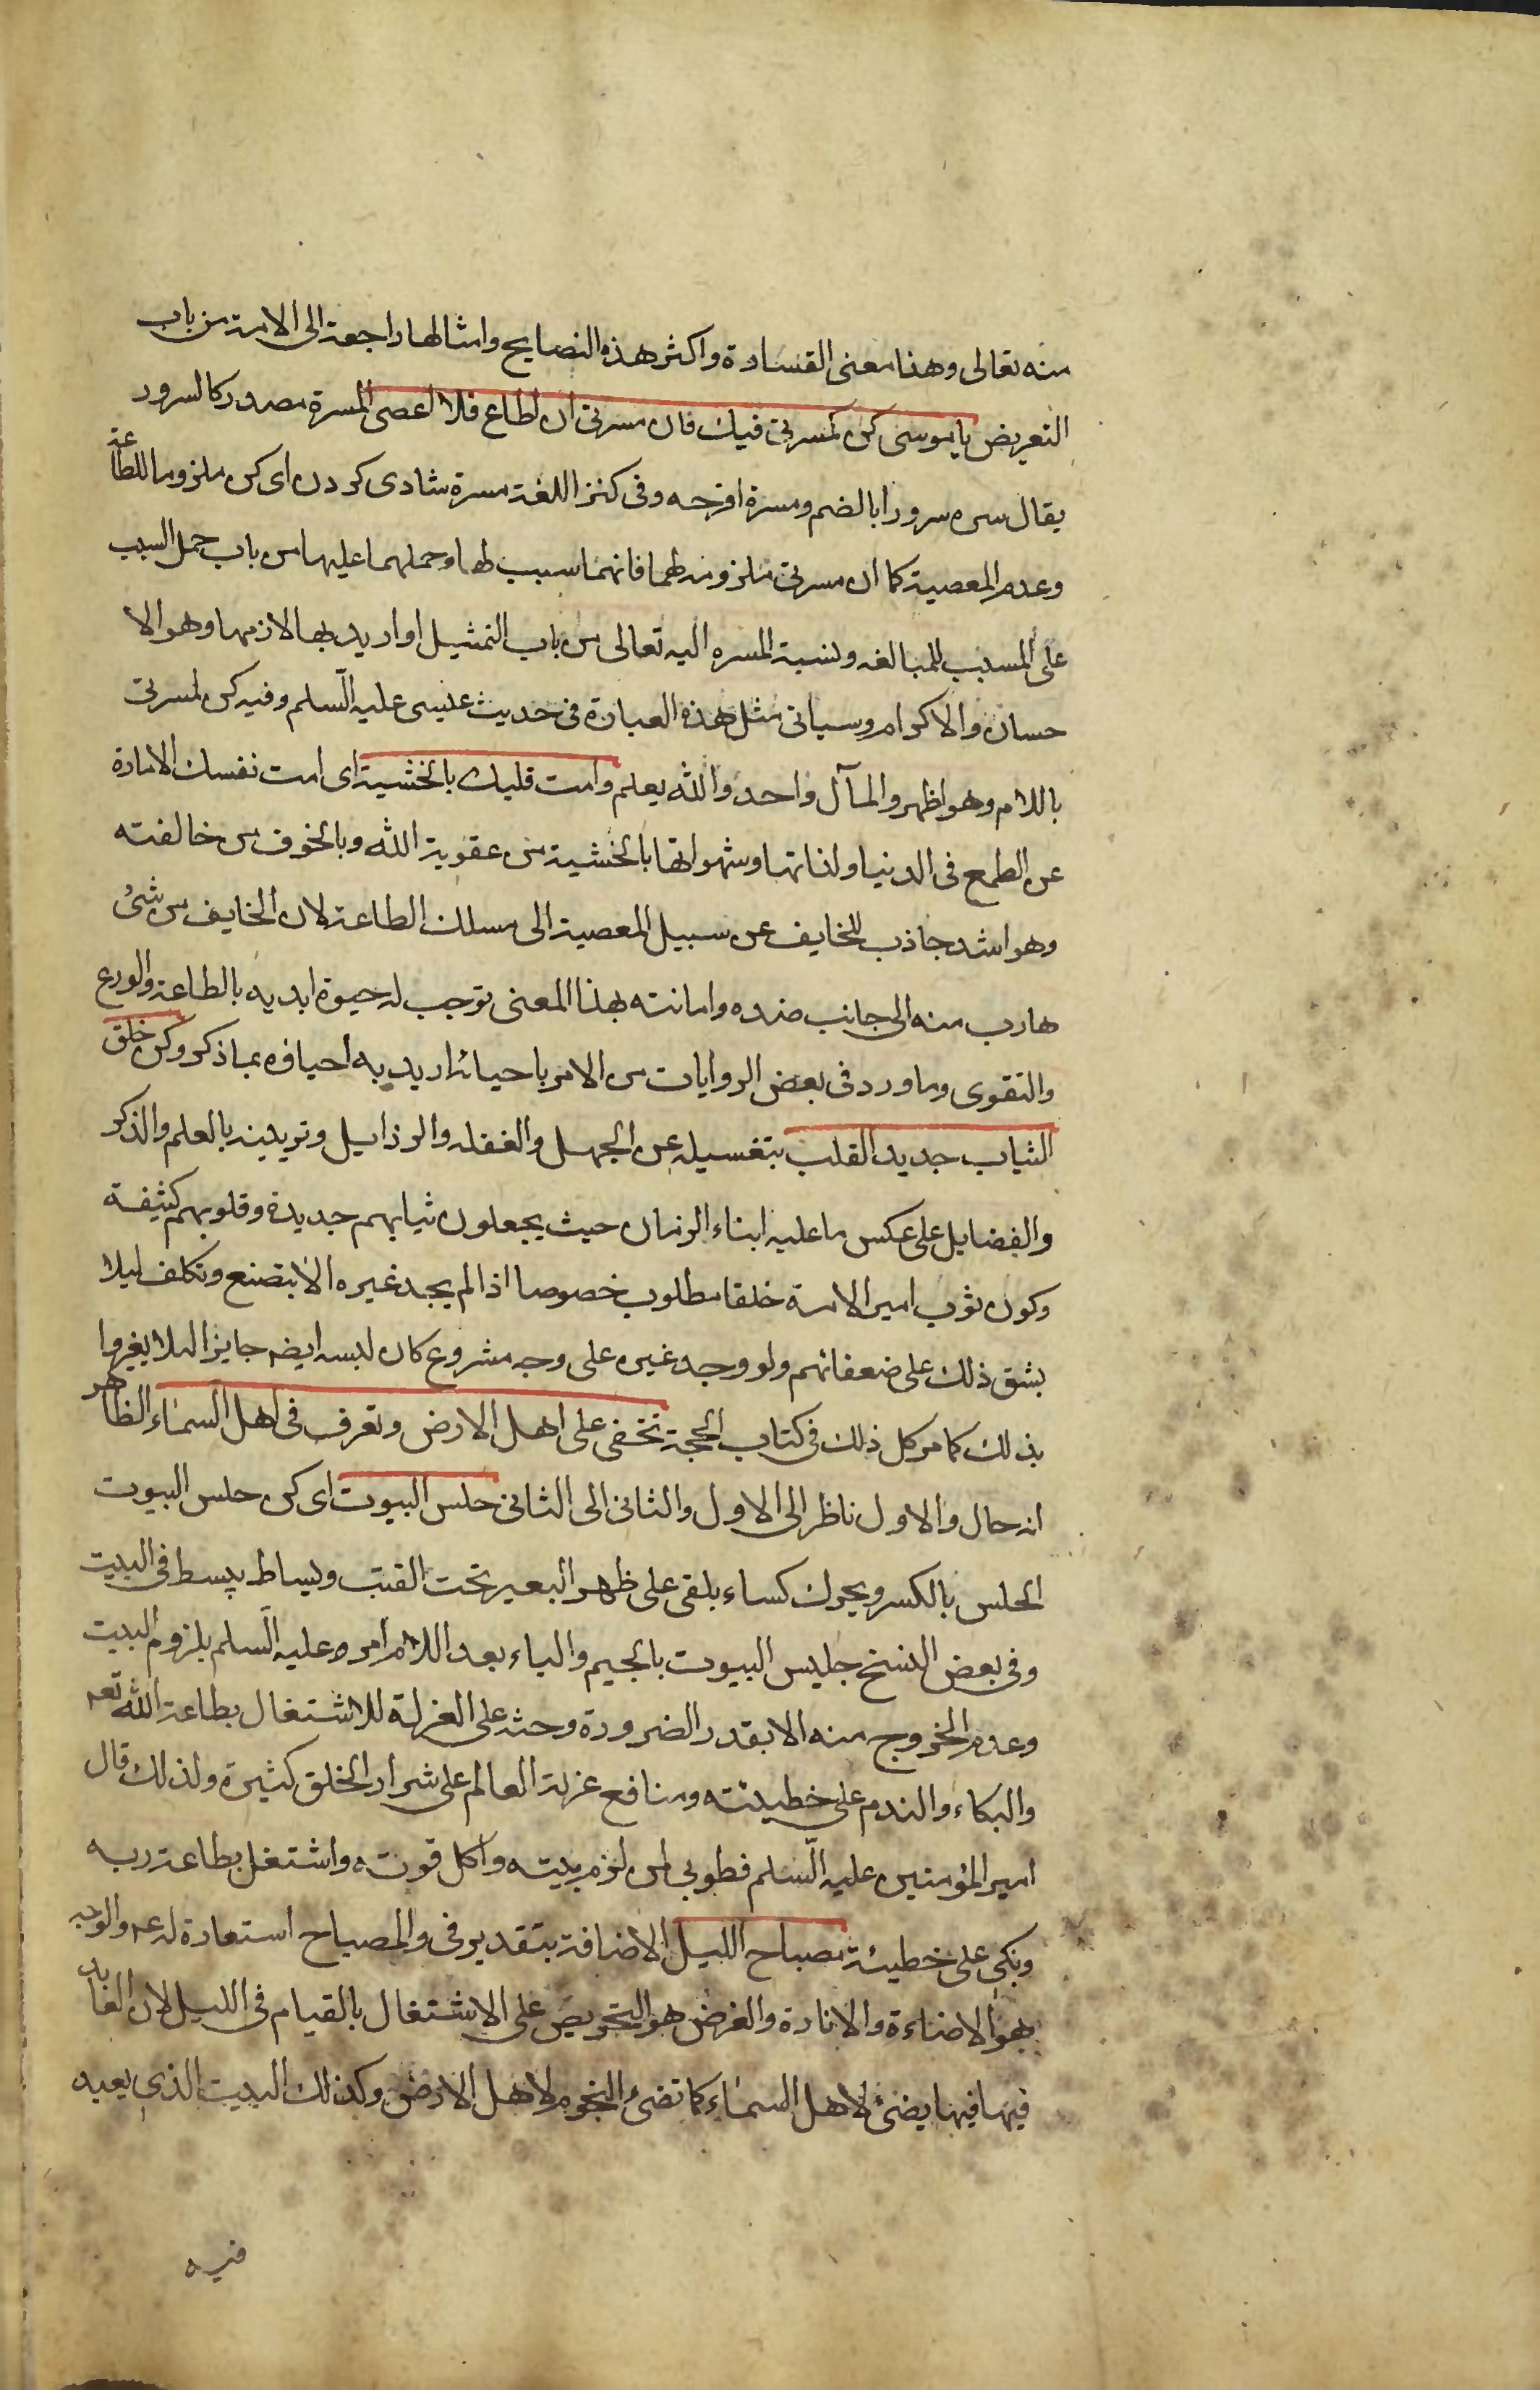 منه تعالى وهذا معنى القساوة واكثر هذه النصايح وامثالها راجعة الى الامة من باب
التعريض يا موسى كن كمسرتى فيك فان مسرتى ان اطاع فلا اعصى المسرة مصدر كالسرور
يقال سره سرورا بالضم ومسرة افرحه وفى كنز اللغة مسرة شادى كردن اى كن ملزوما للطاعة
وعدم المعصية كما ان مسرتى ملزومة لهما فانهما سبب لها وحملهما عليها من باب حمل السبب
على المسبب للمبالغه ونسبة المسره اليه تعالى من باب التمثيل او اريد بها لازمها وهو الا
حسان والاكرام وسياتى مثل هذه العبارة فى حديث عيسى عليه السلم وفيه كن لمسرتى
باللام وهو اظهر والمآل واحد والله يعلم وامت قلبك بالخشية اى امت نفسك الامارة
عن الطمع فى الدنيا ولذاتها وشهواتها بالخشية من عقوبة الله وبالخوف من مخالفته
وهو اشد جاذب للخايف عن سبيل المعصية الى مسلك الطاعة لان الخايف من شئ
هارب منه الى جانب ضده وامانته بهذا المعنى توجب له حيوة ابديه بالطاعة والورع
والتقوى وما ورد فى بعض الروايات من الامر باحيائه اريد به احياؤه بما ذكر وكن خلق
الثياب جديد القلب بتغسيله عن الجهل والغفله والرذايل وتزيينه بالعلم والذكر
والفضايل على عكس ما عليه ابناء الزمان حيث يجعلون ثيابهم جديدة وقلوبهم كثيفة
وكون ثوب امير الامة خلقا مطلوب خصوصا اذا لم يجد غيره الا بتصنع وتكلف ليلا
يشق ذلك على ضعفائهم ولو وجد غيره على وجه مشروع كان لبسه ايضه جايزا لئلا يغيروا
بذلك كما مر كل ذلك فى كتاب الحجة تخفى على اهل الارض وتعرف فى اهل السماء الظاهر
انه حال والاول ناظر الى الاول والثانى الى الثانى حلس البيوت اى كن حلس البيوت
الحلس بالكسر ويحرك كساء يلقى على ظهر البعير تحت القتب وبساط يبسط فى البيت
وفى بعض النسخ جليس البيوت بالجيم والياء بعد اللام امره عليه السلم بلزوم البيت
وعدم الخروج منه الا بقدر الضرورة وحثه على العزلة للاشتغال بطاعة الله تعه
والبكاء والندم على خطيئته ومنافع عزلة العالم على شرار الخلق كثيرة ولذلك قال
امير المؤمنين عليه السلم فطوبى لمن لزم بيته واكل قوته واشتغل بطاعة ربه
وبكى على خطيئة مصباح الليل الاضافة بتقدير فى والمصباح استعارة له عم والوجه
هو الاضاءة والانارة والغرض هو التحريص على الاشتغال بالقيام فى الليل لان العابد
فيها فيها يضئ لاهل السماء كما تضئ النجوم لاهل الارض وكذلك البيت الذى يعبد
فيه